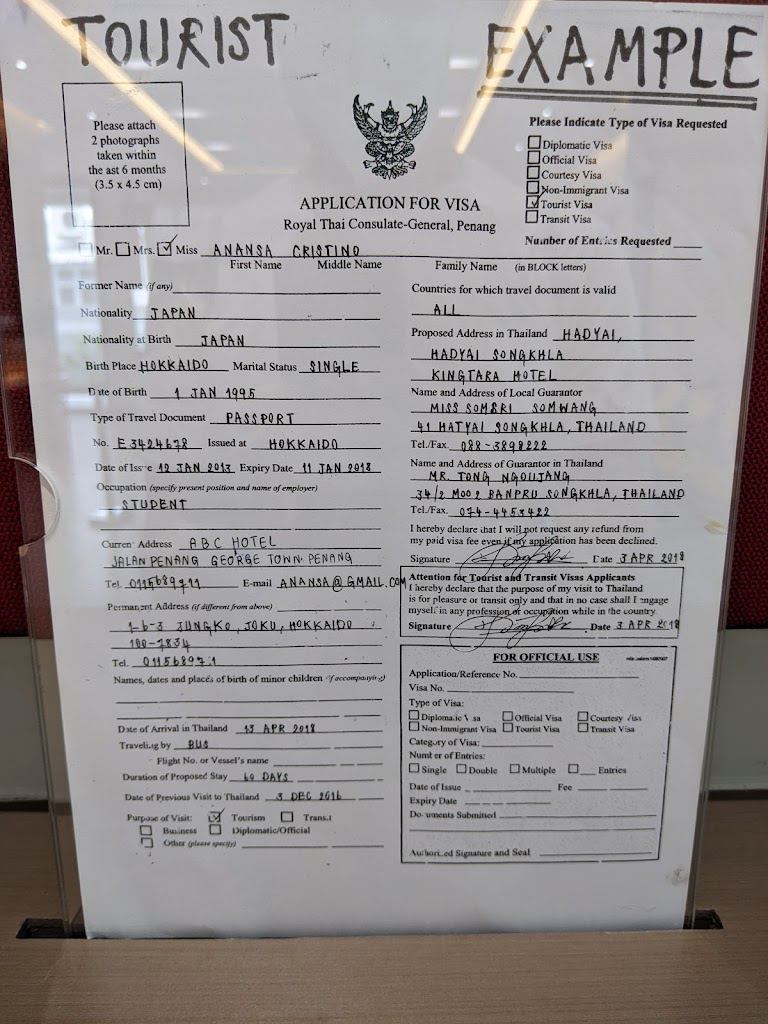 TOURIST
EXAMPLE
Please attach
2 photographs
taken within
the ast 6 months
(3.5 x 4.5 cm)
Please Indicate Type of Visa Requested
Diplomatic Visa
Official Visa
Courtesy Visa
Non-Immigrant Visa
Tourist Visa
Transit Visa
Number of Entries Requested
APPLICATION FOR VISA
Royal Thai Consulate-General, Penang
Mr. Mrs. Miss ANANSA CRISTINO
First Name Middle Name Family Name (in BLOCK letters)
Former Name (if any)
Nationality JAPAN
Nationality at Birth JAPAN
Birth Place HOKKAIDO Marital Status SINGLE
Date of Birth 1 JAN 1995
Type of Travel Document PASSPORT
No. E3424678 Issued at HOKKAIDO
Date of Issue 12 JAN 2013 Expiry Date 11 JAN 2018
Occupation (specify present position and name of employer)
STUDENT
Current Address ABC HOTEL
JALAN PENANG GEORGE TOWN PENANG
Tel. E-mail ANANSA@GMAIL.COM
Permanent Address (if different from above)
1-6-3 JUNGKO, JOKU, HOKKAIDO
100-7834
Tel.
Names, dates and places of birth of minor children (if accompanying)
Date of Arrival in Thailand 13 APR 2018
Traveling by BUS
Flight No. or Vessel's name
Duration of Proposed Stay 60 DAYS
Date of Previous Visit to Thailand 3 DEC 2016
Purpose of Visit: Tourism Transit
Business Diplomatic/Official
Other (please specify)
Countries for which travel document is valid
ALL
Proposed Address in Thailand HADYAI,
HADYAI SONGKHLA
KINGTARA HOTEL
Name and Address of Local Guarantor
MISS SOMSRI SOMWANG
41 HATYAI SONGKHLA, THAILAND
Tel./Fax. 088-3898222
Name and Address of Guarantor in Thailand
MR. TONG NGOUJANG
34/2 MOO 2 BANPRU SONGKHLA, THAILAND
Tel./Fax. 074-4453422
I hereby declare that I will not request any refund from
my paid visa fee even if my application has been declined.
Signature Date 3 APR 2018
Attention for Tourist and Transit Visas Applicants
I hereby declare that the purpose of my visit to Thailand
is for pleasure or transit only and that in no case shall I engage
myself in any profession or occupation while in the country.
Signature Date 3 APR 2018
FOR OFFICIAL USE
Application/Reference No.
Visa No.
Type of Visa:
Diplomatic Visa Official Visa Courtesy Visa
Non-Immigrant Visa Tourist Visa Transit Visa
Category of Visa:
Number of Entries:
Single Double Multiple Entries
Date of Issue Fee
Expiry Date
Documents Submitted
Authorized Signature and Seal